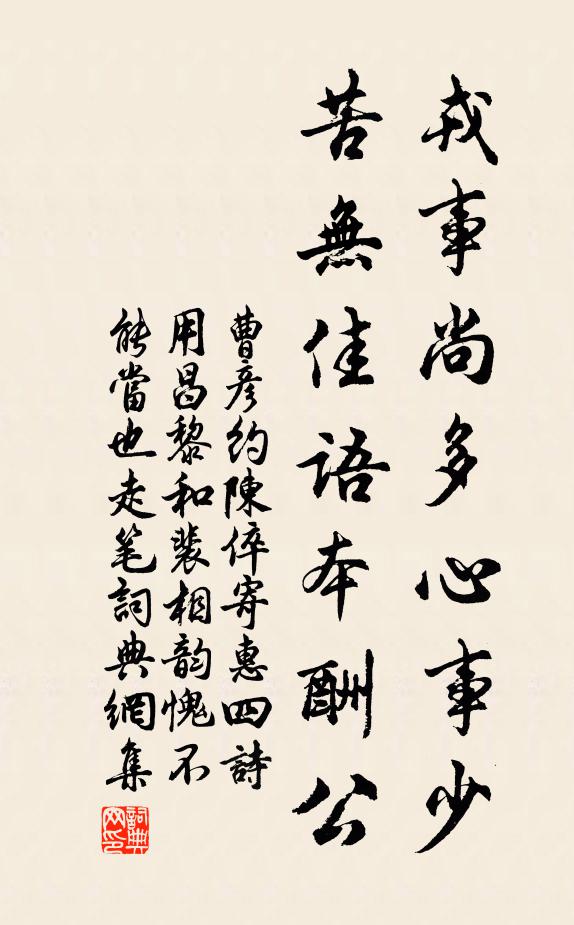 戎事尚多心事少
苦無佳語本酬公
曹彥約陳倅寄惠四詩
用昌黎和裴相韵愧不
能當也走笔詞典網集
詞典网印